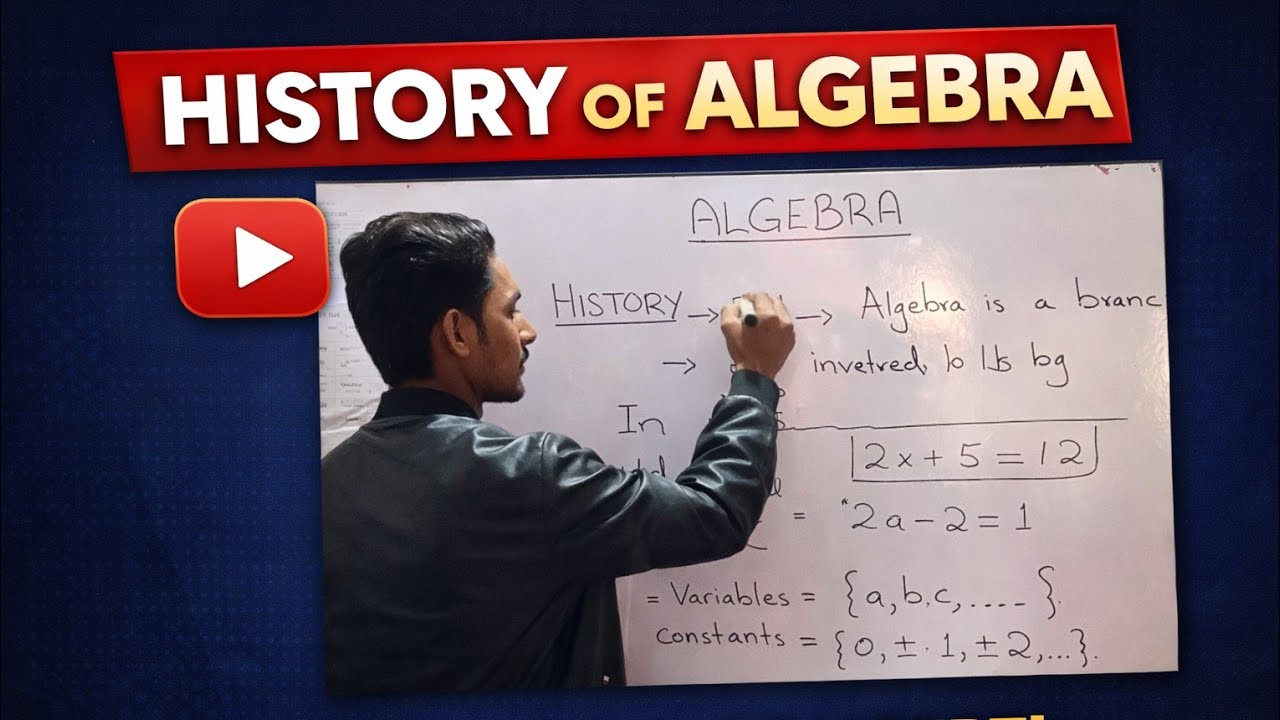 HISTORY OF ALGEBRA
ALGEBRA
HISTORY → → Algebra is a branc
→ invetred, to Its bg
In
2x + 5 = 12
= 2a - 2 = 1
= Variables = {a, b, c, ..... }.
constants = {0, ± 1, ± 2, ...}.